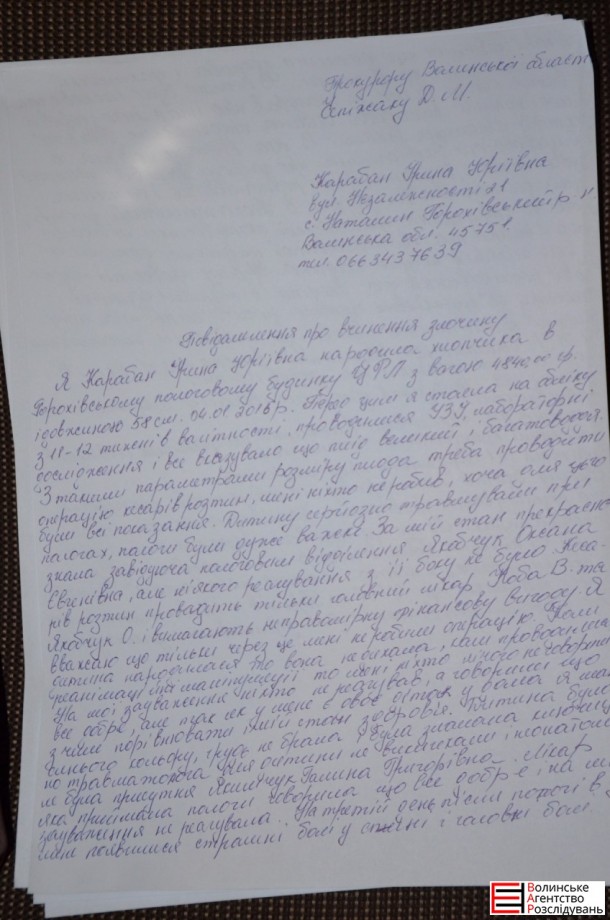 Прокурору Волинської област
Спіжаку Д. М.
Карабан Ірина Юріївна
вул. Незалежності 21
с. Наталин Горохівський р-н
Волинська обл. 45751.
тел. 0663437639
Повідомлення про вчинення злочину
Я Карабан Ірина Юріївна народила хлопчика в
Горохівському пологовому будинку ЦРЛ з вагою 4840,00 гр.
і довжиною 58 см. 04.01 2018 р. Перед цим я стояла на обліку
з 11-12 тижнів вагітності, проводилися УЗУ, лабораторні
дослідження і все вказувало що плід великий, і багатоводдя.
З такими параметрами розміру плода треба проводити
операцію кесарів розтин, мені ніхто не робив, хоча для цього
були всі показання. Дитину серйозно травмували при
пологах, пологи були дуже важкі. За мій стан прекрасно
знала завідуюча пологовим відділення Якобчук Оксана
Євгенівна, але ніякого реагування з її боку не було. Кеса-
рів розтин проводить тільки головний лікар Коба В. та
Якобчук О. і вимагають неправомірну фінансову вигоду. Я
вважаю що тільки через це мені не робили операцію. Коли
дитина народилася то вона не дихала, нам проводили
реанімації та маніпуляції то мені ніхто нічого не говорив.
На мої зауваження ніхто не реагував, а говорили що
все добре, але так як у мене є двоє діток у дома я маю
з чим порівнювати і мій стан здоров'я. Дитина була
синього кольору, грудь не брала і була зламана ключиця
по травматолога для дитини не викликали і неонатолог
не була присутня Ясинчук Галина Григорівна. Лікар
яка приймала пологи говорила що все добре і на мої
зауваження не реагувала. На третій день після пологів в
мене появилися страшні болі у спині і головні болі.
Волинське
Агентство
Розслідувань